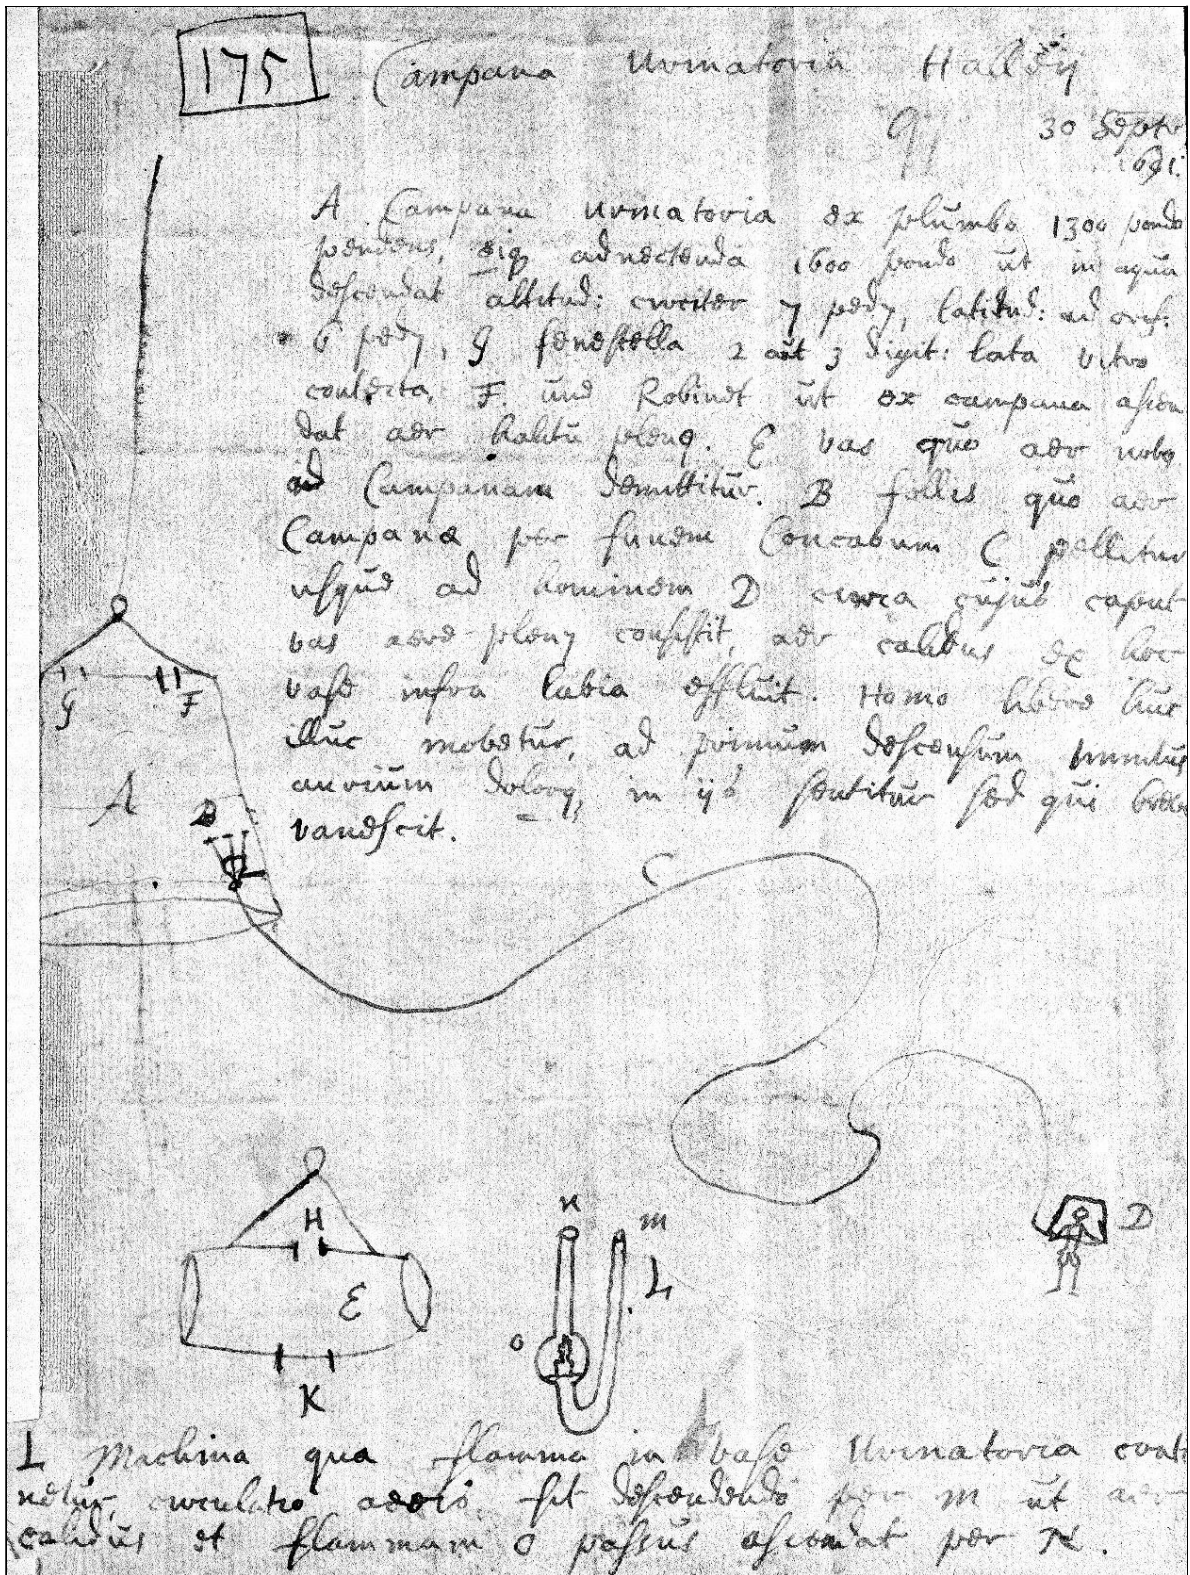 175 Campana Urinatoria Halley
30 Septr
1691.
A Campana urinatoria ex plumbo 1300 pondo
pendens, eiq adnectenda 1600 pondo ut in aqua
descendat altitud: circiter 7 ped, latitud: ad orif:
6 ped, G fenestella 2 aut 3 digit: lata vitro
contecta, F. une Robinet ut ex campana ascen
dat aer halitu plenq. E vas quo aer novq
ad Campanam demittitur. B follis quo aer
Campanæ per funem Concavum C pellitur
usque ad hominem D circa cujus caput
vas aere plenu consistit, aer calidus ex hoc
vase infra labia effluit. Homo libere huc
illuc movetur, ad primum descensum
aurium dolorq, in ijs sentitur sed qui breve
vanescit.
G F
A
B
C
D
H
E
K
N
M
L
O
L Machina qua flamma in vase Urinatoria conti
netur, circulatio aeris fit descendendo per M ut aer
calidus et flammam O passus ascendat per N.